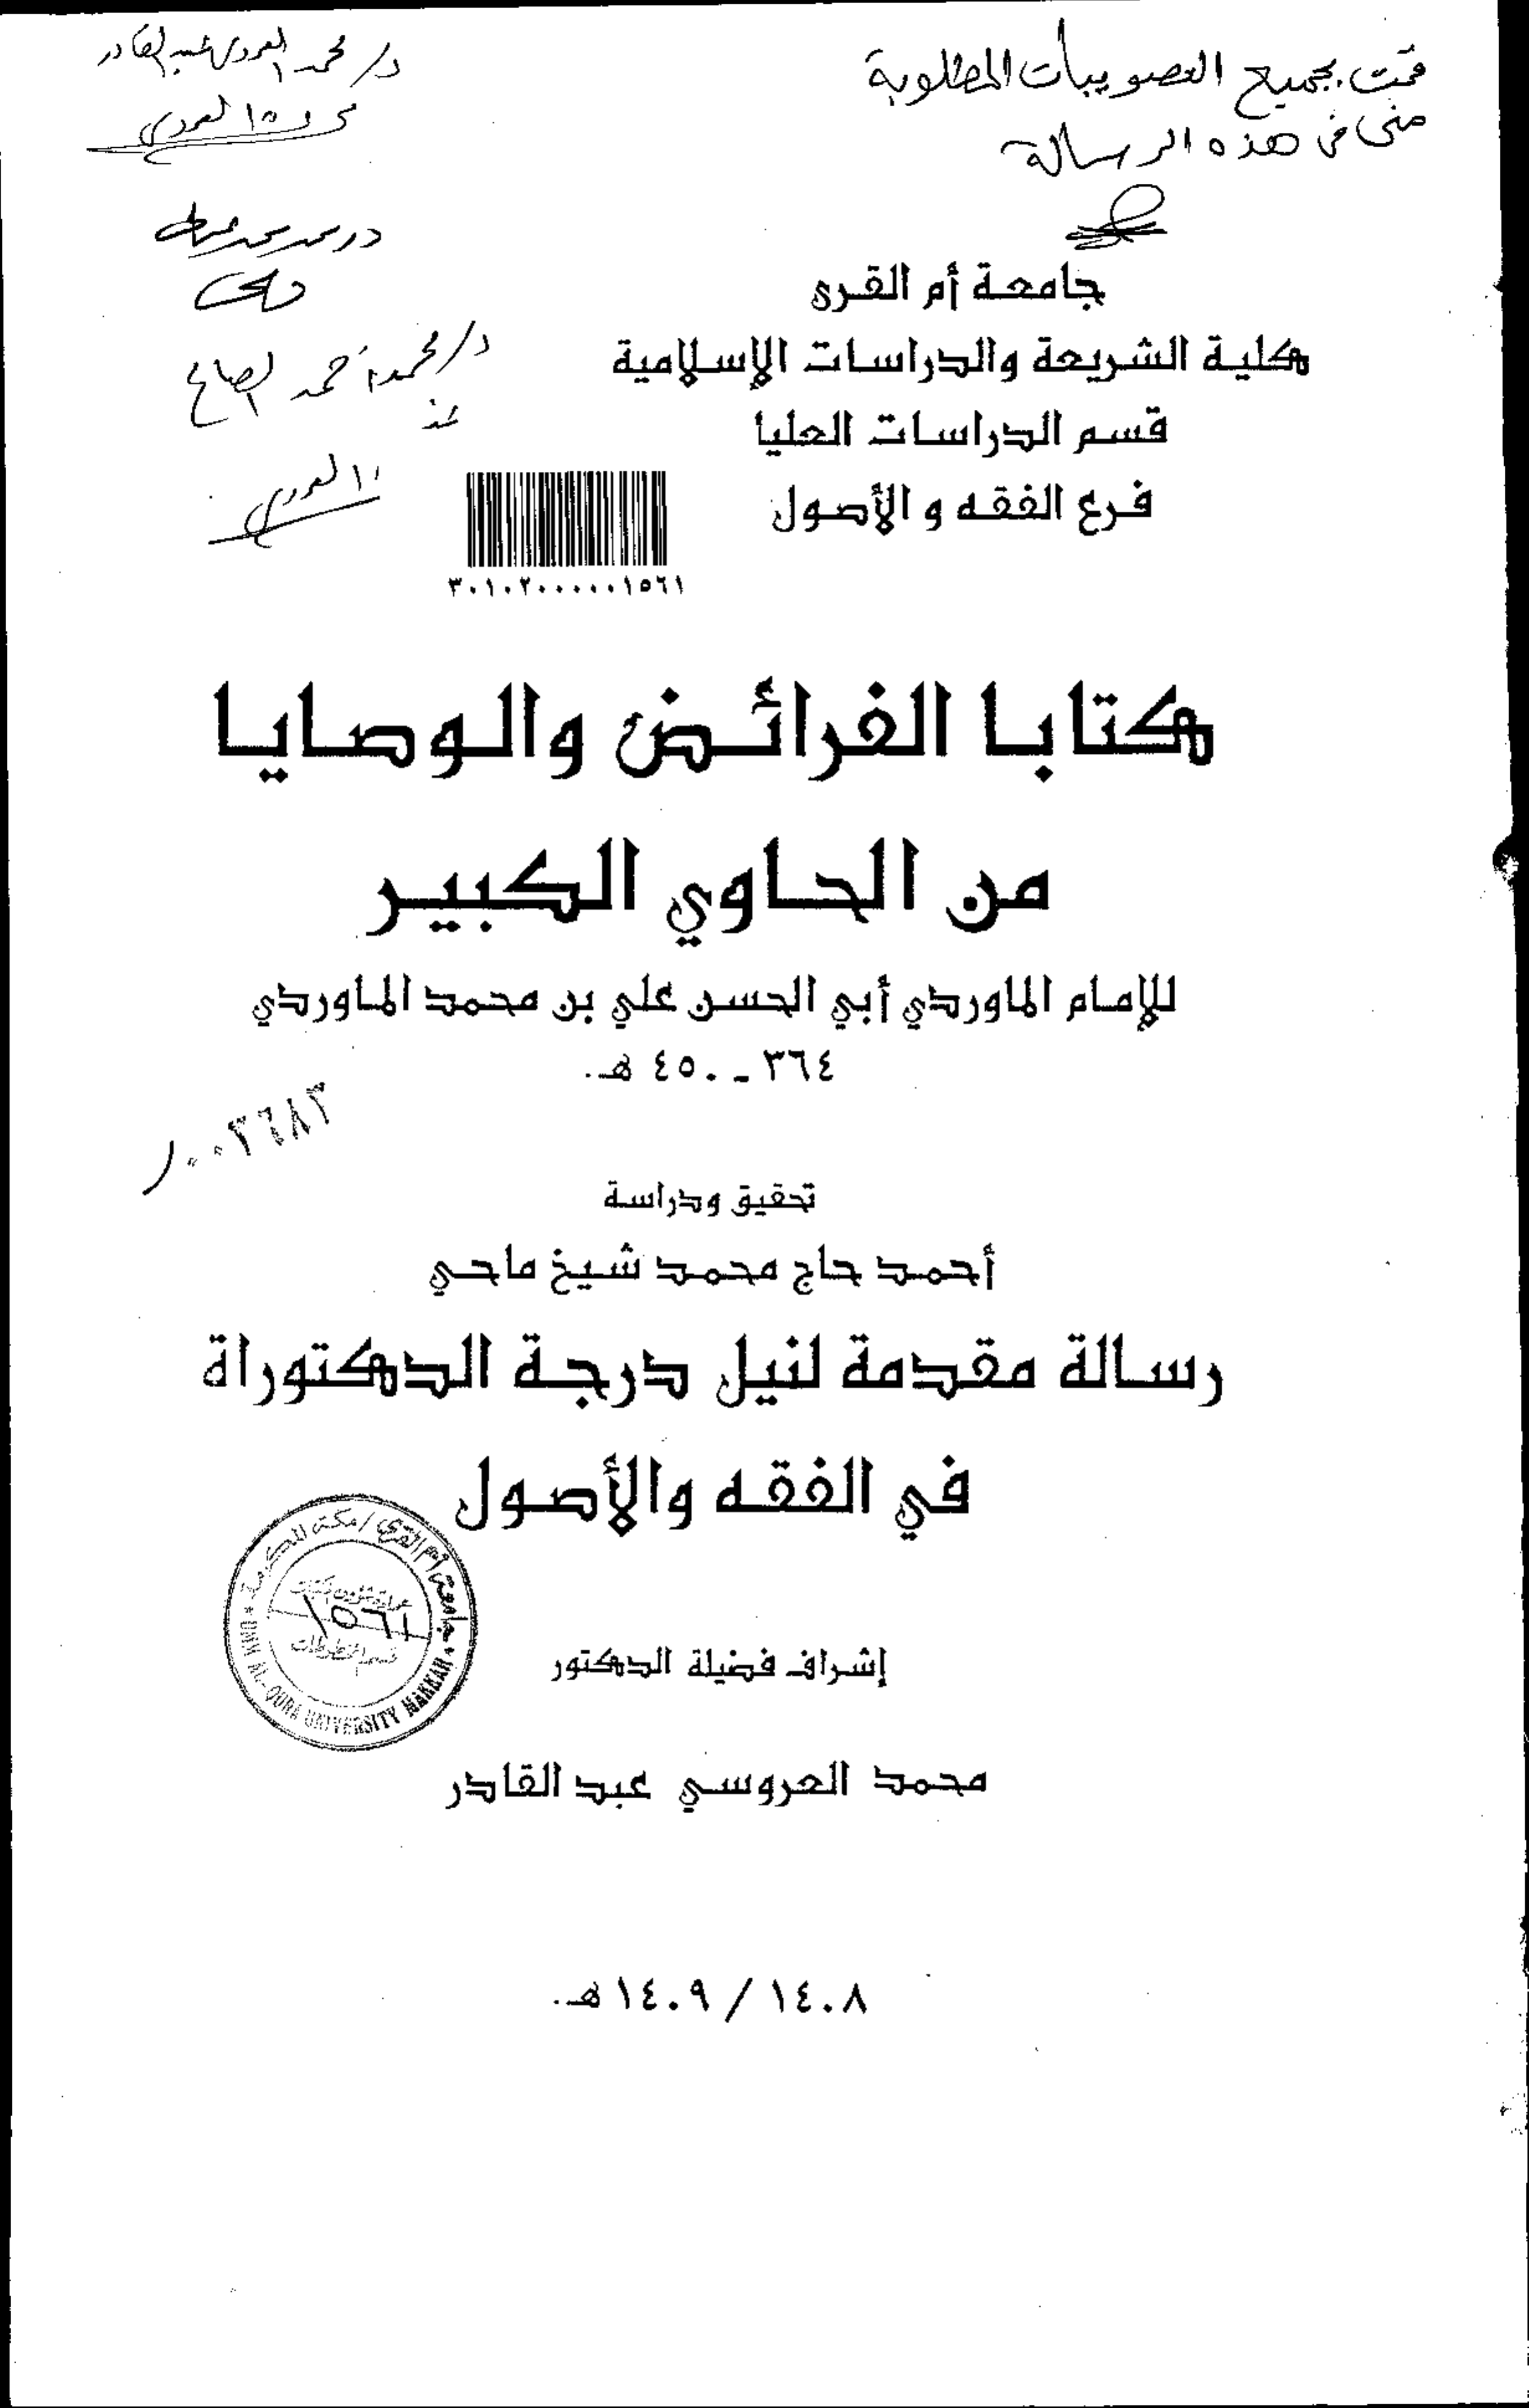 قمت بجميع التصويبات المطلوبة
منى فى هذه الرسالة
د/ محمد العروسى عبد القادر
العروسى
د/ محمد أحمد الصالح
العروسى
جامعة أم القرى
كلية الشريعة والدراسات الإسلامية
قسم الدراسات العليا
فرع الفقه و الأصول
٣٠١٠٢٠٠٠٠٠١٥٦١
كتابا الفرائض والوصايا
من الحاوي الكبير
للإمام الماوردي أبي الحسن علي بن محمد الماوردي
٣٦٤ ـ ٤٥٠ هـ.
٠٠٣٦٨٣
تحقيق ودراسة
أحمد حاج محمد شيخ ماحي
رسالة مقدمة لنيل درجة الدكتوراة
في الفقه والأصول
جامعة أم القرى / مكة المكرمة
١٥٦١
قسم المخطوطات
UMM AL-QURA UNIVERSITY MAKKAH
إشراف فضيلة الدكتور
محمد العروسي عبد القادر
١٤٠٨ / ١٤٠٩ هـ.